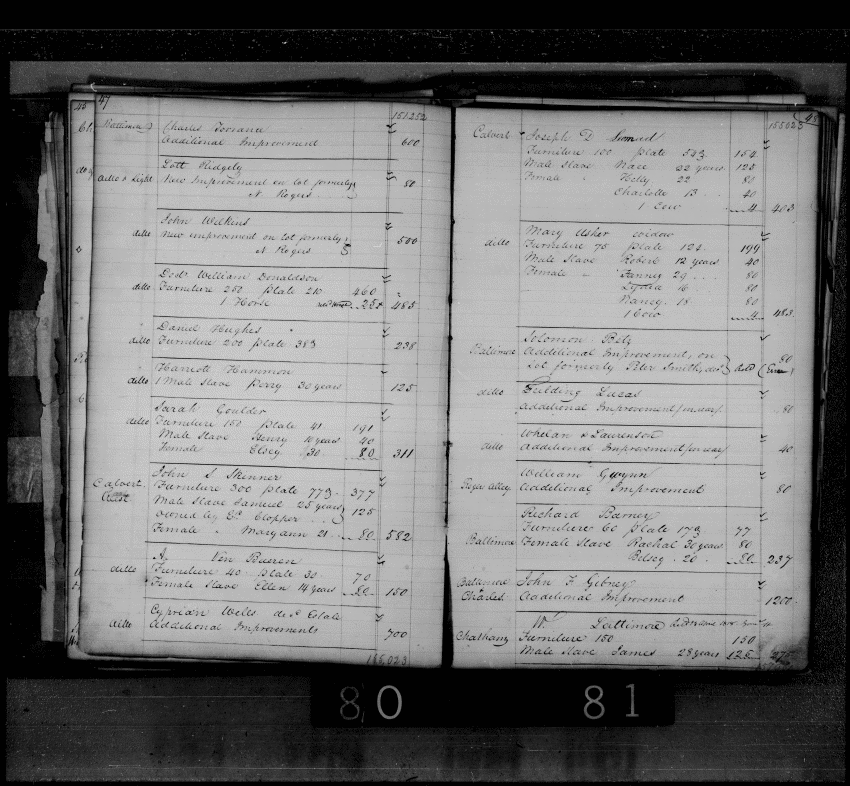 47
151252
Baltimore Charles Torrance
Additional Improvement 600
Lott Ridgely
ditto & Light New Improvement on lot formerly
N. Rogers 80
John Wilkins
ditto New improvement on lot formerly
N. Rogers 500
William Donaldson
ditto Furniture 250 Plate 210 460
1 Horse 25 485
Daniel Hughes
ditto Furniture 200 Plate 383 238
Harriott Hammon
ditto 1 Male Slave Perry 30 years 125
Sarah Goulder
ditto Furniture 150 Plate 41 191
Male Slave Henry 10 years 40
Female Elsey 30 80 311
John S. Skinner
Calvert Furniture 300 Plate 773 377
Male Slave Samuel 25 years
owned by Clopper 125
Female " Maryann 21 80 582
A. Van Bueren
ditto Furniture 40 Plate 30 70
Female Slave Ellen 14 years 80 150
Cyprian Wells Estate
ditto Additional Improvements 700
155,023
48
155023
Calvert Joseph D.
Furniture 100 Plate 543 154
Male Slave Nace 22 years 125
Female " Hetty 22 80
Charlotte 13 40
1 Cow 4 403
Mary Usher widow
ditto Furniture 75 Plate 124 199
Male Slave Robert 12 years 40
Female " Fanney 29 80
Lydia 16 80
Nancy 18 80
1 Cow 4 483
Solomon Betz
Baltimore Additional Improvement, on 80
Lot formerly Peter Smith, (Error)
ditto Fielding Lucas
Additional Improvement 80
Whelan & Laurenson
ditto Additional Improvement 40
William Gwynn
Alley Additional Improvement 80
Richard Barney
Furniture 60 Plate 173 77
Baltimore Female Slave Rachal 30 years 80
Betsey 20 80 237
Baltimore John F Gibney
Charles Additional Improvement 1200
W. Lattimore
Chatham Furniture 150 150
Male Slave James 28 years 125 275
80
81